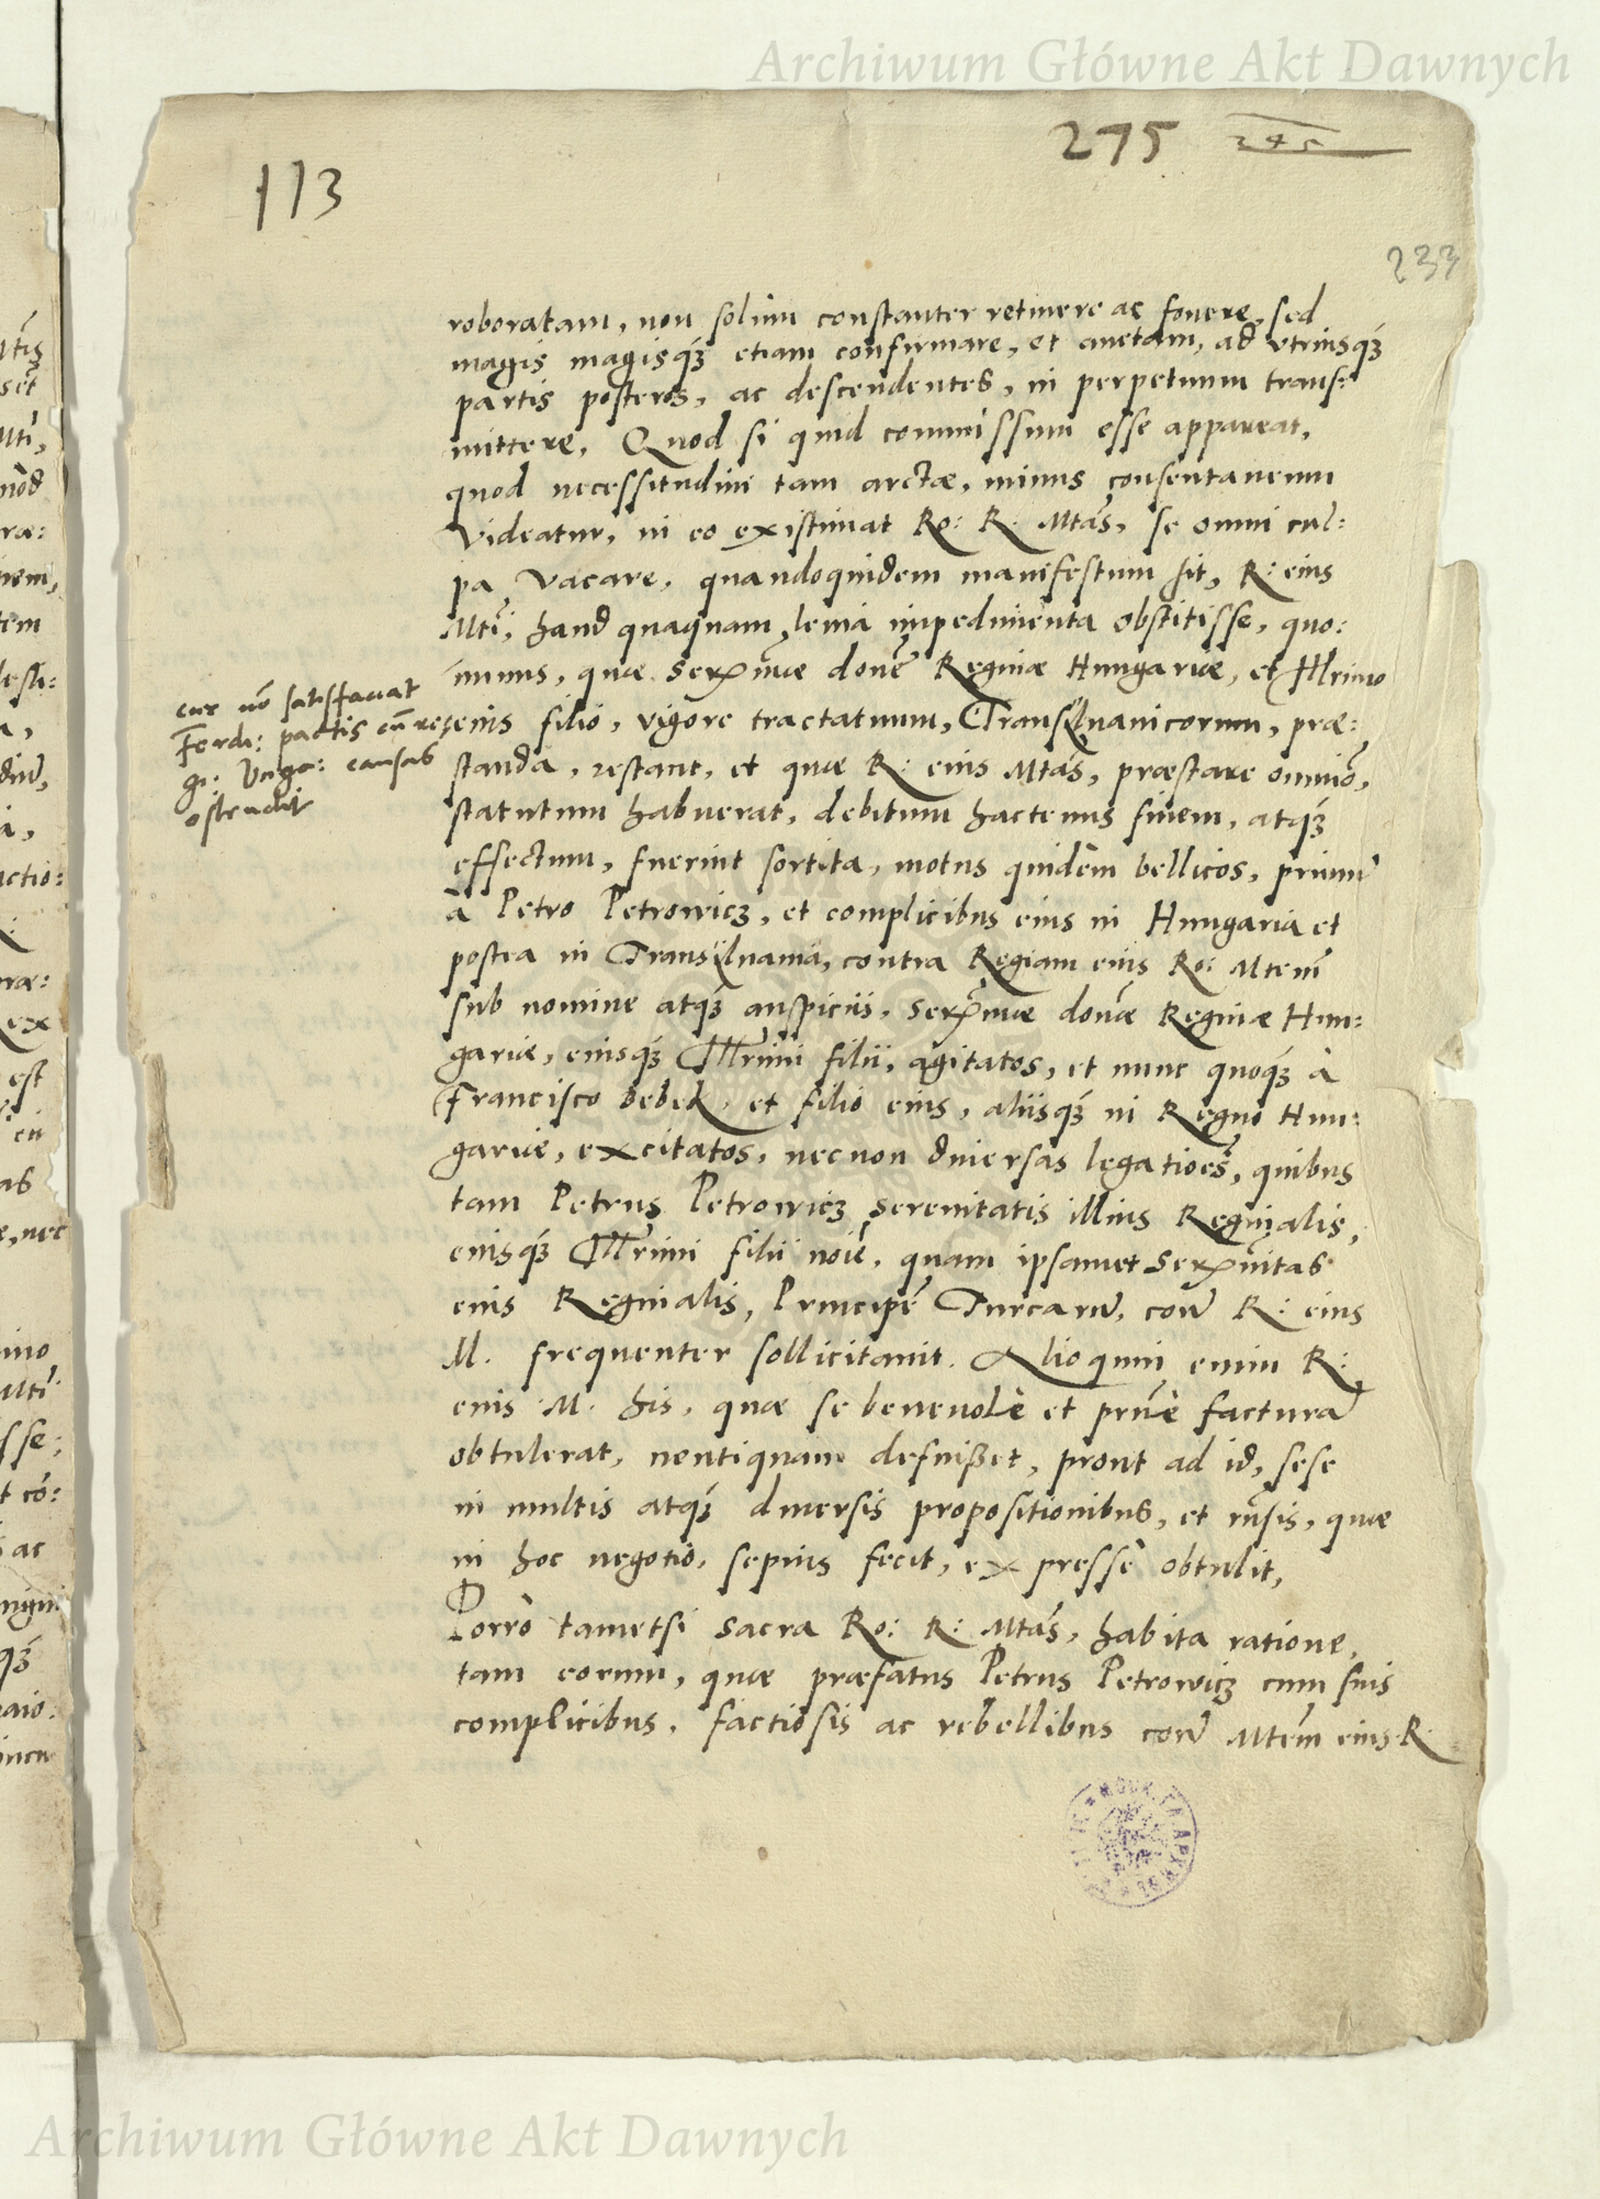 Archiwum Główne Akt Dawnych
275 245
113
233
roboratam, non solum constanter retinere ac fovere, sed
magis magisq́ꝫ etiam confirmare, et auctam, ad vtriusq́ꝫ
partis posteros, ac descendentes, in perpetuum trans:
mittere. Quod si quid commissum esse appareat,
quod necessitudini tam arctæ, minus consentaneum
videatur, in eo existimat Ro: R. Mtas, se omni cul:
pa vacare, quandoquidem manifestum sit, R: eius
Mti, haud quaquam leuia impedimenta obstitisse, quo:
minus, quæ Serᵐᵃᵉ donæ Reginæ Hungariæ, et Illrimo
eius filio, vigore tractatuum, Transyluanicorum, præ:
standa, restant, et quæ R: eius Mtas, præstare omnio,
statutum habuerat, debitum hactenus finem, atq́ꝫ
effectum, fuerint sortita, motus quidem bellicos, primũ
à Petro Petrowicz, et complicibus eius in Hungaria et
postea in Transyluania, contra Regiam eius Ro: Mtem
sub nomine atq́ꝫ auspiciis, Serᵐᵃᵉ donæ Reginæ Hun:
gariæ, eiusq́ꝫ Illrimi filii, agitatos, et nunc quoq́ꝫ à
Francisco bebek, et filio eius, aliisq́ꝫ in Regno Hun:
gariæ, excitatos, necnon diuersas legatioes, quibus
tam Petrus Petrowicz serenitatis illius Reginalis,
eiusq́ꝫ Illrimi filii noie, quam ipsamet Serᵐitas
eius Reginalis, Principẽ Turcarũ, cõtr̃ R: eius
M. frequenter sollicitauit. Alioquin enim R:
eius M. his, quæ se beneuolè et prñe facturã
obtulerat, neutiquam defuißet, prout ad id, sese
in multis atq́ꝫ diuersis propositionibus, et rñsis, quæ
in hoc negotio, sepius fecit, expressè obtulit,
Porrò tametsi Sacra Ro: R: Mtas, habita ratione,
tam eorum, quæ præfatus Petrus Petrowicz cum suis
complicibus, factiosis ac rebellibus cõtr̃ Mtem eius R.
cur nõ satisfaciat
Ferdi: pactis cũ re
gi: Vnga: causas
ostendit
Archiwum Główne Akt Dawnych